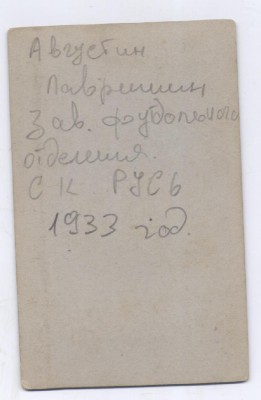 Августин
Лавришин
Зав. футбольного
отделения.
С К РУСЬ
1933 год.